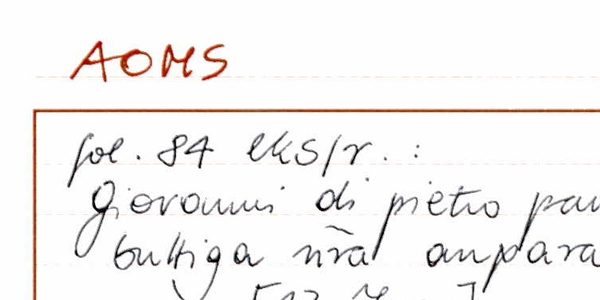 AOMS
fol. 84 eks/r. :
Giovanni di pietro
buttiga nr̃a anpara